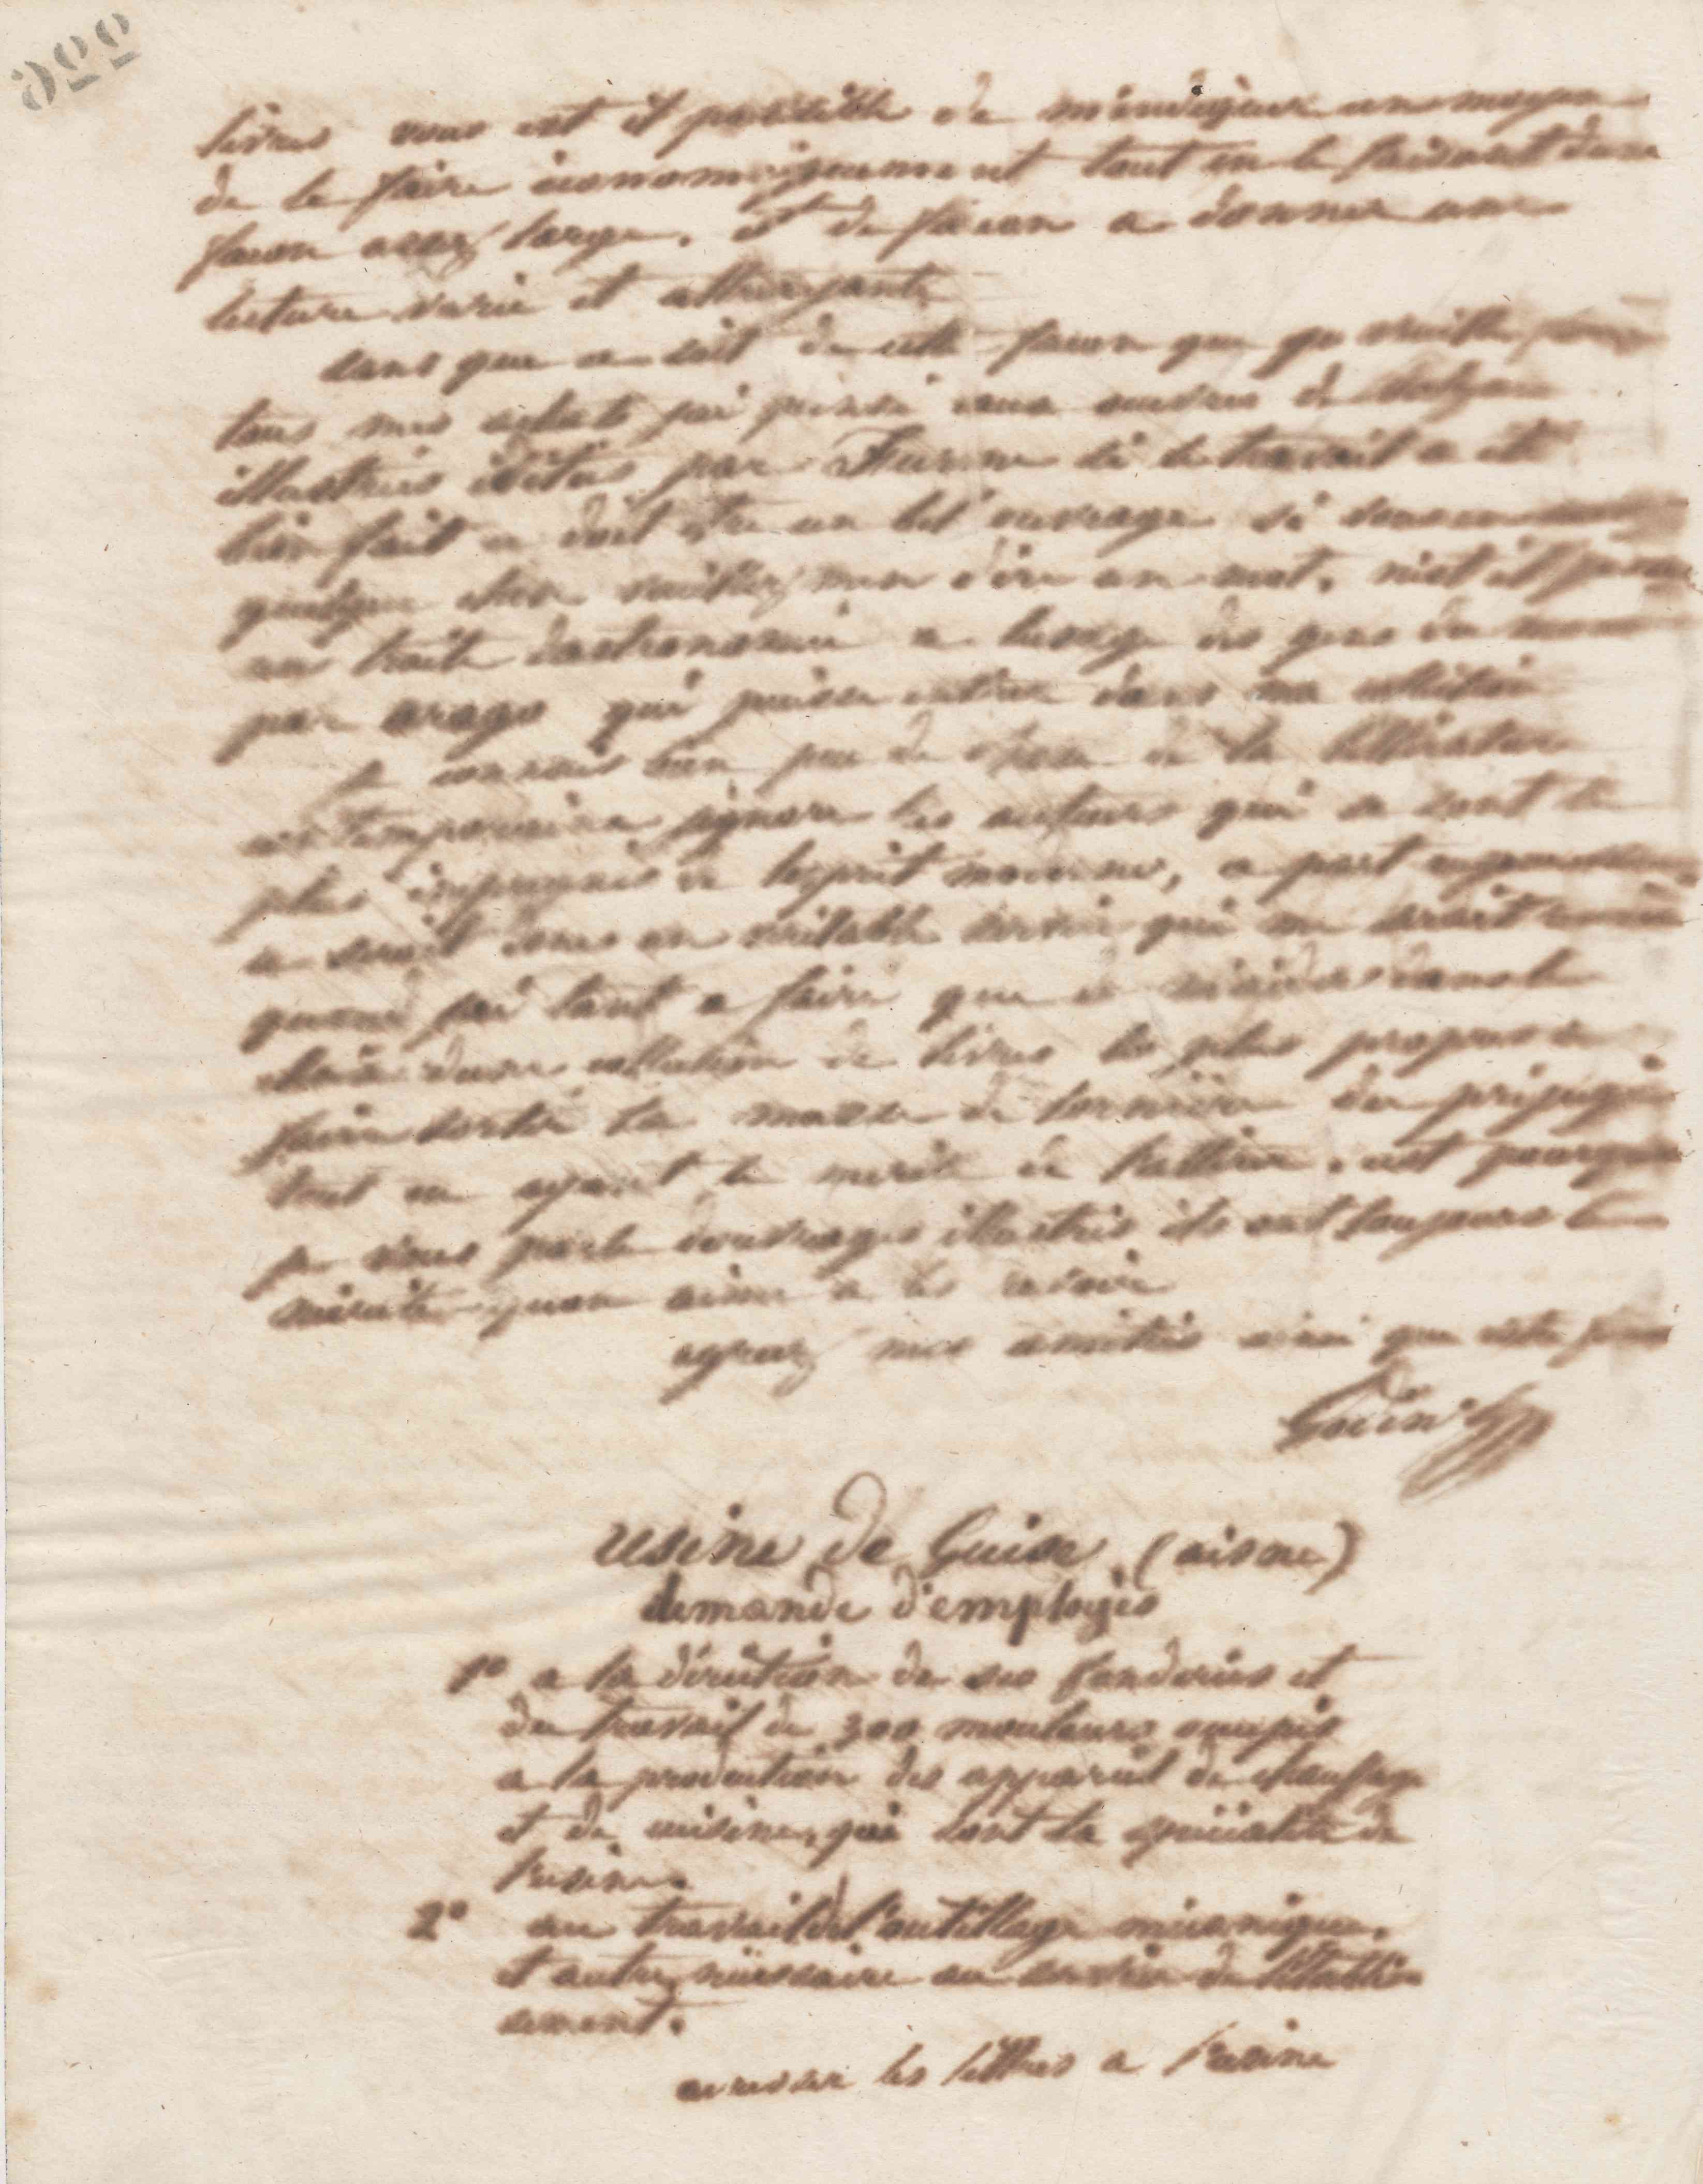 livres vous est il possible de m'indiquer un moyen
de le faire economiquement tout en le faisant dune
facon assez large, et de facon a donner une
lecture varie et attrayante
sans que ce soit de cette facon que je veuille faire
tous mes achats jai pensé aux œuvres de
illustrés édités par Furne si le travail a été
bien fait ce doit etre un bel ouvrage si vous en
quelque chose veuillez men dire un mot, nest il pas
un traité dastronomie a lusage des gens du monde
par arago qui puisse entrer dans ma collection
je connais bien peu de chose de la littérature
contemporaine jignore les auteurs qui se sont le
plus impregnés de lesprit moderne, a part
ce serait donc un véritable service qui me serait rendu
quand jai tant a faire que de maider dans le
choix dune collection de livres les plus propres a
faire sortir la masse de lornière du préjugé
tout en ayant le merite de lattirer, cest pourquoi
je vous parle douvrages illustrés ils ont toujours le
mérite quon aime a les revoir
agreez mes amitiés ainsi que votre femme
Godin
usine de Guise (aisne)
demande d'employés
1º a la direction de ses fonderies et
du travail de 300 mouleurs occupés
a la production des appareils de chauffage
et de cuisine, qui sont la spécialité de
l'usine.
2º au travail de l'outillage mécanique.
et autre nécessaire au service de l'établis
sement.
adresser les lettres a l'usine